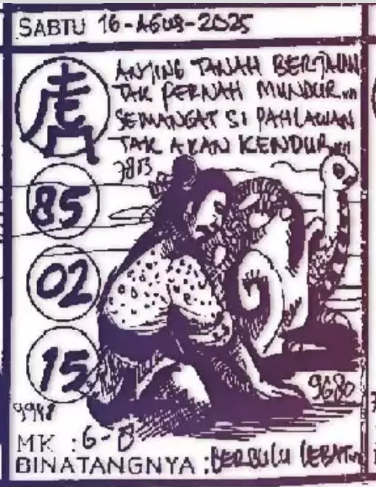 SABTU 16-AGUS-2025
虎
ANJING TANAH BERJALAN
TAK PERNAH MUNDUR...
SEMANGAT SI PAHLAWAN
TAK AKAN KENDUR...
85
02
15
9680
MK : 6-8
BINATANGNYA : BERBULU LEBAT...